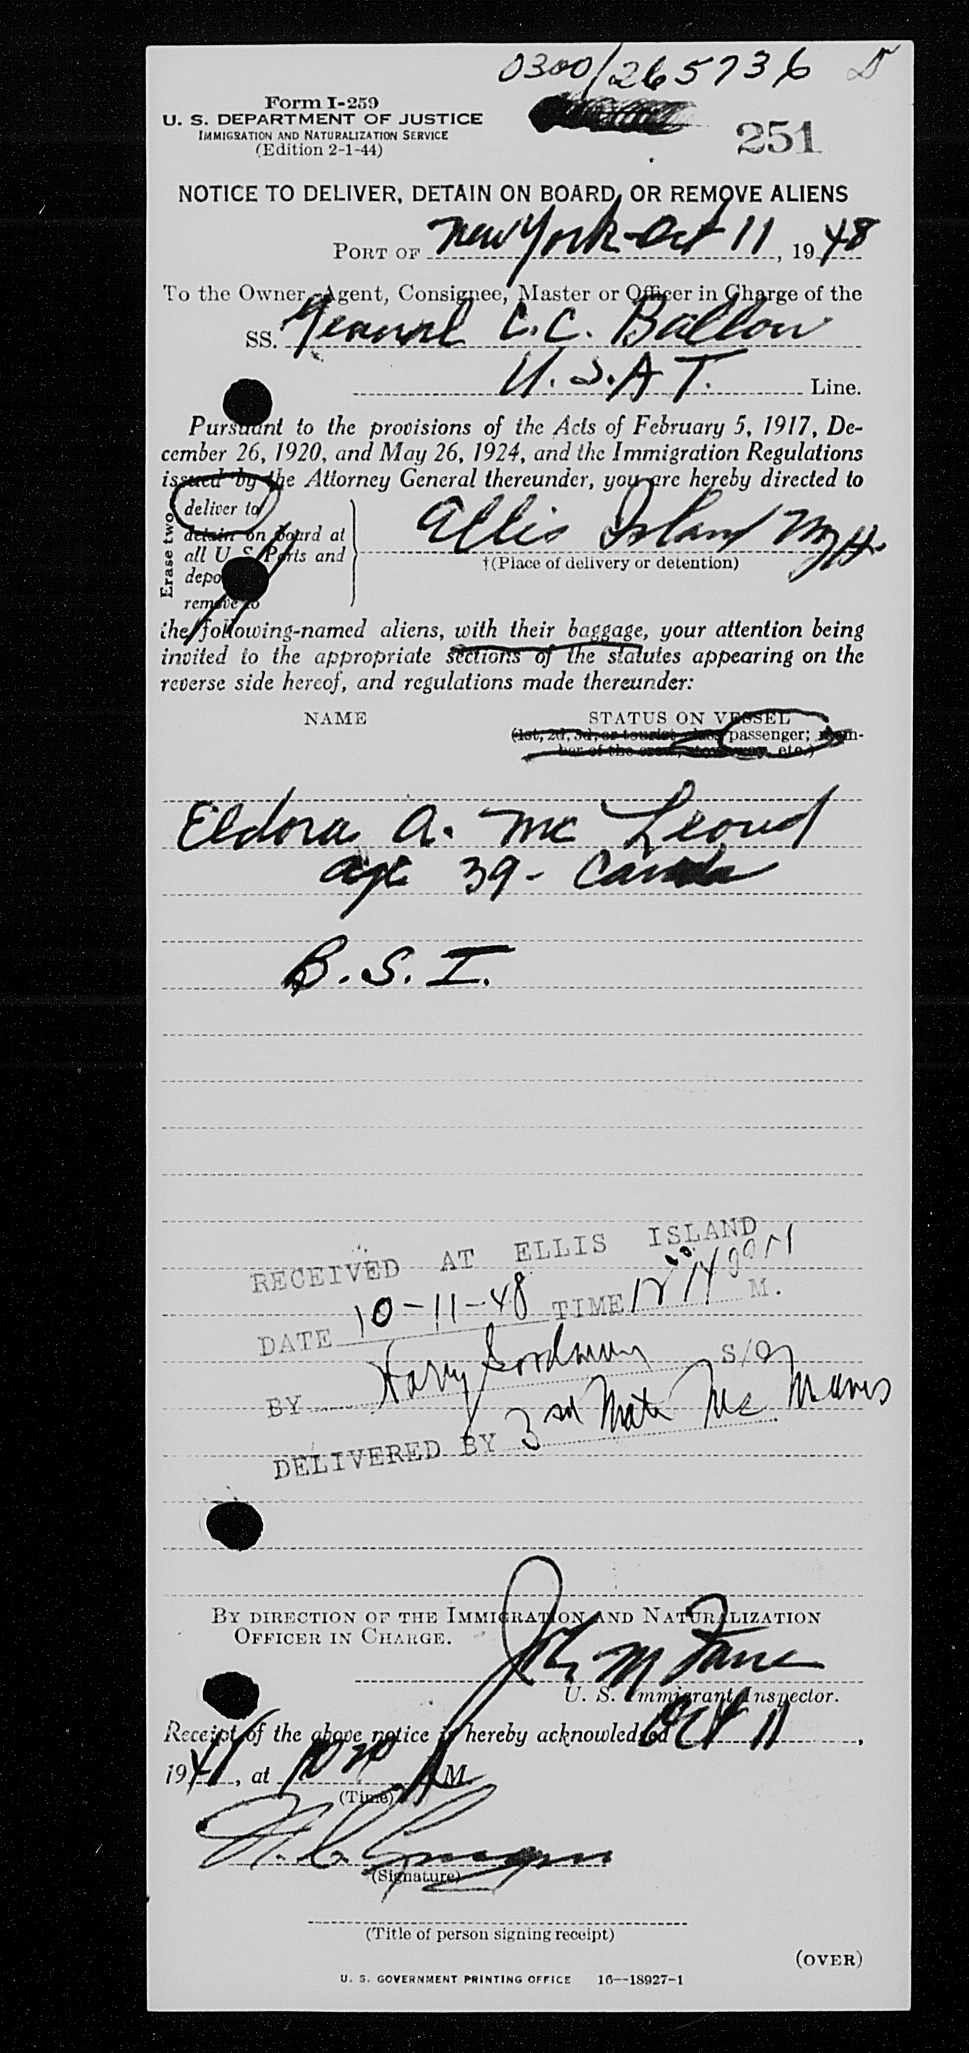 0300/265736 D
Form I-259
U. S. DEPARTMENT OF JUSTICE
IMMIGRATION AND NATURALIZATION SERVICE
(Edition 2-1-44)
251
NOTICE TO DELIVER, DETAIN ON BOARD, OR REMOVE ALIENS
PORT OF New York - Oct 11, 1948
To the Owner, Agent, Consignee, Master or Officer in Charge of the
SS. General C.C. Ballou
U.S.A.T. Line.
Pursuant to the provisions of the Acts of February 5, 1917, De-
cember 26, 1920, and May 26, 1924, and the Immigration Regulations
issued by the Attorney General thereunder, you are hereby directed to
Erase two
deliver to
detain on board at
all U S Ports and
depo
remove to
Ellis Island NYH.
†(Place of delivery or detention)
the following-named aliens, with their baggage, your attention being
invited to the appropriate sections of the statutes appearing on the
reverse side hereof, and regulations made thereunder:
NAME STATUS ON VESSEL
(1st, 2d, 3d, or tourist class passenger; mem-
ber of the crew, stowaway, etc.)
Eldora A. McLeoud
age 39 - Canada
B.S.I.
RECEIVED AT ELLIS ISLAND
DATE 10-11-48 TIME M.
BY Harry Goodman S/O
DELIVERED BY 3rd Mate McManus
BY DIRECTION OF THE IMMIGRATION AND NATURALIZATION
OFFICER IN CHARGE.
John M
U. S. Immigrant Inspector.
Receipt of the above notice is hereby acknowledged Oct 11,
194, at 10 A M
(Time)
(Signature)
(Title of person signing receipt)
(OVER)
U. S. GOVERNMENT PRINTING OFFICE 16—18927-1